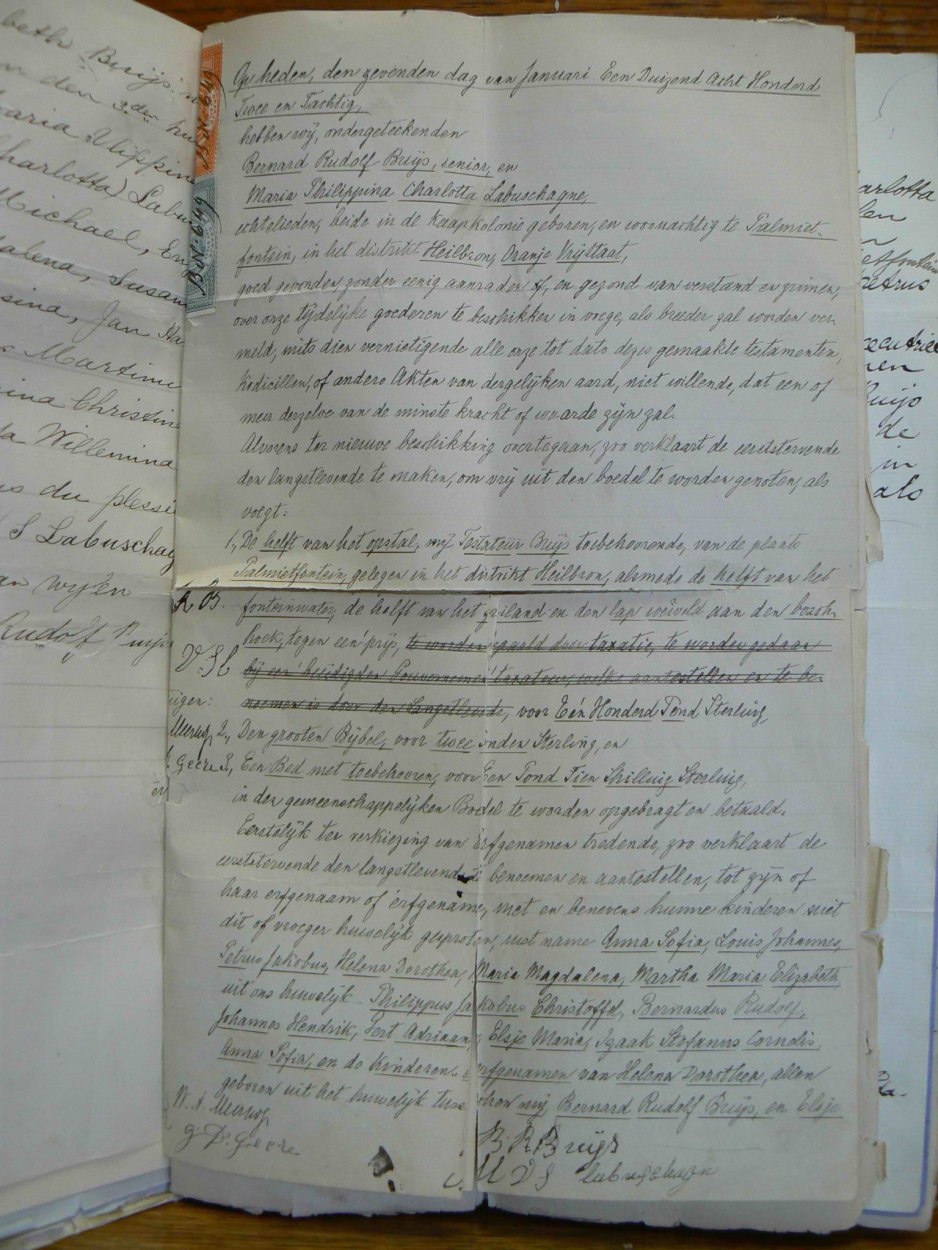 beth Buijs
den 3den hu
aria Ulippine
harlotta) Labu
Michael, En
alena, Susan
sina, Jan Ha
Martinu
ina Christin
a Willemina
us du plessi
S Labuschag
an wijken
Rudolf Buijs
igen:
B.N. 649
B.N. 649
Op heden, den zevenden dag van Januari Een Duizend Acht Honderd
Twee en Tachtig,
hebben wij, ondergeteekenden
Bernard Rudolf Buijs, senior, en
Maria Philippina Charlotta Labuschagne,
echtelieden, beide in de Kaapkolonie geboren, en woonachtig te Palmiet-
fontein, in het distrikt Heilbron, Oranje Vrijstaat,
goed gevonden, zonder eenig aanraden of, en gezond van verstand en zinnen,
over onze tijdelijke goederen te beschikken in voege, als breeder zal worden ver-
meld, mits dien vernietigende alle onze tot dato dezes gemaakte testamenten,
Kodicillen, of andere Akten van dergelijken aard, niet willende, dat een of
meer derzelve van de minste kracht of waarde zijn zal.
Alvorens ter nieuwe beschikking overtegaan, zoo verklaart de eerststervende
den langstlevende te maken, om vrij uit den boedel te worden genoten, als
volgt:
1., De helft van het opstal, mij Testateur Buijs toebehoorende, van de plaats
Palmietfontein, gelegen in het distrikt Heilbron, alsmede de helft van het
fonteinwater, de helft van het zaailand en den lap weiveld aan den bosch-
hoek, tegen een prijs, te worden bepaald door taxatie, te worden gedaan
bij een beëdigden Gouvernement taxateur, welke aantestellen en te be-
noemen is door den Langstlevende, voor Eén Honderd Pond Sterling,
2., Den grooten Bijbel, voor twee Ponden Sterling, en
3., Een Bed met toebehooren, voor Een Pond Tien Shilling Sterling,
in den gemeenschappelijken Boedel te worden opgebragt en betaald.
Eerstelijk ter verkiezing van Erfgenamen tredende, zoo verklaart de
eerststervende den langstlevende te benoemen en aantestellen, tot zijn of
haar erfgenaam of erfgename, met en benevens hunne kinderen uit
dit of vroeger huwelijk gesproten, met name Anna Sofia, Louis Johannes,
Petrus Jakobus, Helena Dorothea, Maria Magdalena, Martha Maria Elizabeth
uit ons huwelijk - Philippus Jakobus Christoffel, Bernardus Rudolf,
Johannes Hendrik, Gert Adriaan, Elsje Maria, Izaak Stefanus Cornelis,
Anna Sofia, en de kinderen erfgenamen van Helena Dorothea, allen
geboren uit het huwelijk tusschen mij Bernard Rudolf Buijs, en Elsje
W. A. Merwe
G. D. Geere
B. R. Buijs
M D S labuschagn
arlotta
Petrus
Buijs
de
in
als